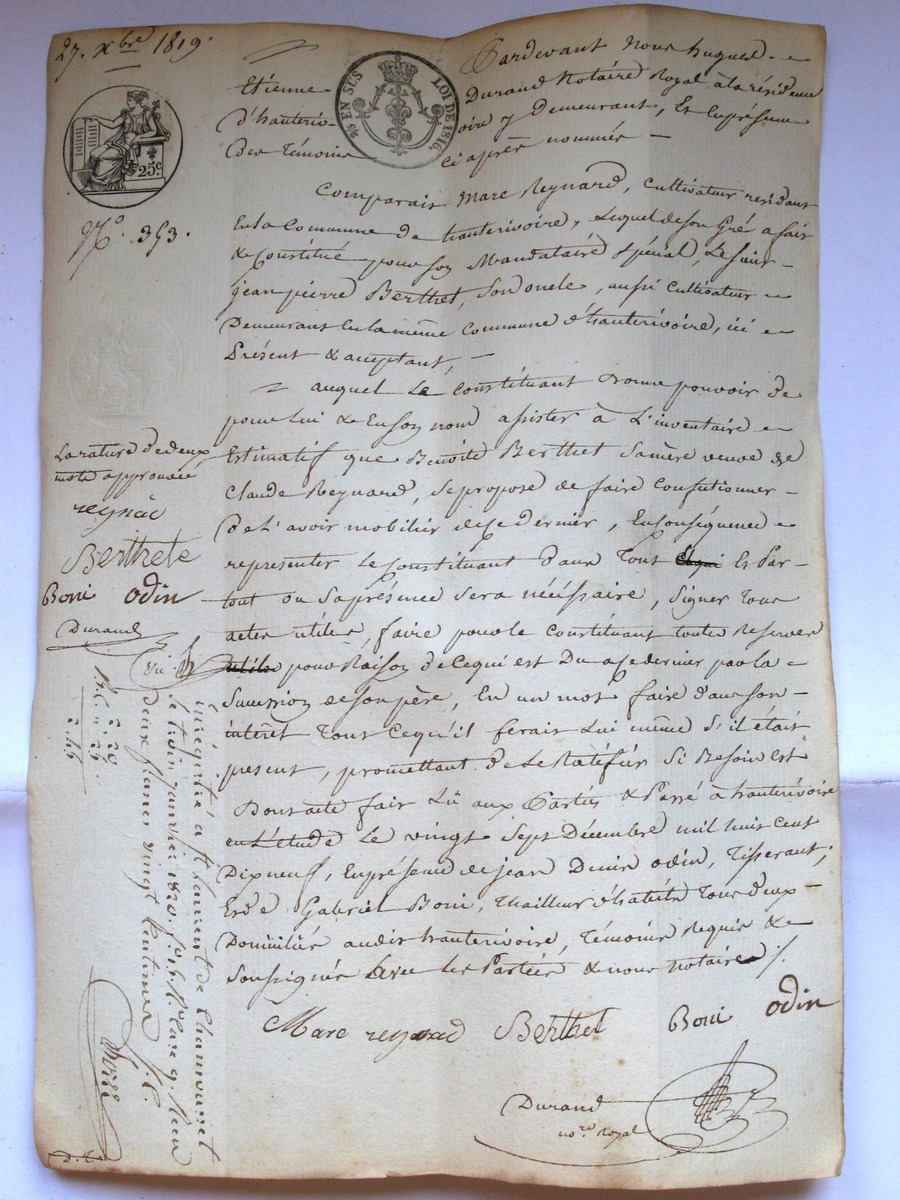 27. Xbre 1819.
25 c.
25 EN SUS
LOI DE 1816.
No. 353.
Pardevant Nous hugues
Etienne Durand Notaire Royal à la résidence
D'hauterivoire y Demeurant, En présence
Des Témoins ci après nommés
Comparait Marc Reynard, cultivateur residant
En la Commune De hauterivoire, Lequel de son Gré a fait
& Constitué pour son Mandataire Spécial, Le sieur
jean pierre Berthet, son oncle, aussi cultivateur
Demeurant En la même Commune d'hauterivoire, ici
Présent & acceptant,
auquel Le Constituant Donne pouvoir de
pour Lui & En son nom assister à L'inventaire
Estimatif que Benoite Berthet Sa mère veuve de
Claude Reynard, Se propose de faire
De L'avoir mobilier de ce dernier, En conséquence
representer Le Constituant Dans Tout Et Par-
tout ou Sa présence Sera nécéssaire, Signer Tous
actes utiles, faire pour le Constituant toutes Reserves
pour Raison De Ce qui est Du a ce dernier par la
Succession de Son père, En un mot faire Dans Son
intérêt Tout Ce qu'il ferait Lui même S'il était
present, promettant De Le Ratifier Si Besoin Est
Dont acte fait Lû aux Parties & Passé à hauterivoire
en L'étude Le vingt Sept Décembre mil huit cent
Dix neuf, En présence de jean Denis odin, Tisserant,
Et de Gabriel Boni, Thailleur d'habits Tous deux
Domiciliés audit hauterivoire, Témoins Requis &
Soussignés avec Les Parties & nous notaire
Marc reynard Berthet Boni odin
Durand
no.re Royal
La rature de deux
mots approuvée
reynard
Berthete
Boni odin
Durand
2. 20
Enregistré à St Laurent de Chamousset
le trois janvier 1820. Reçu
deux francs vingt Centimes